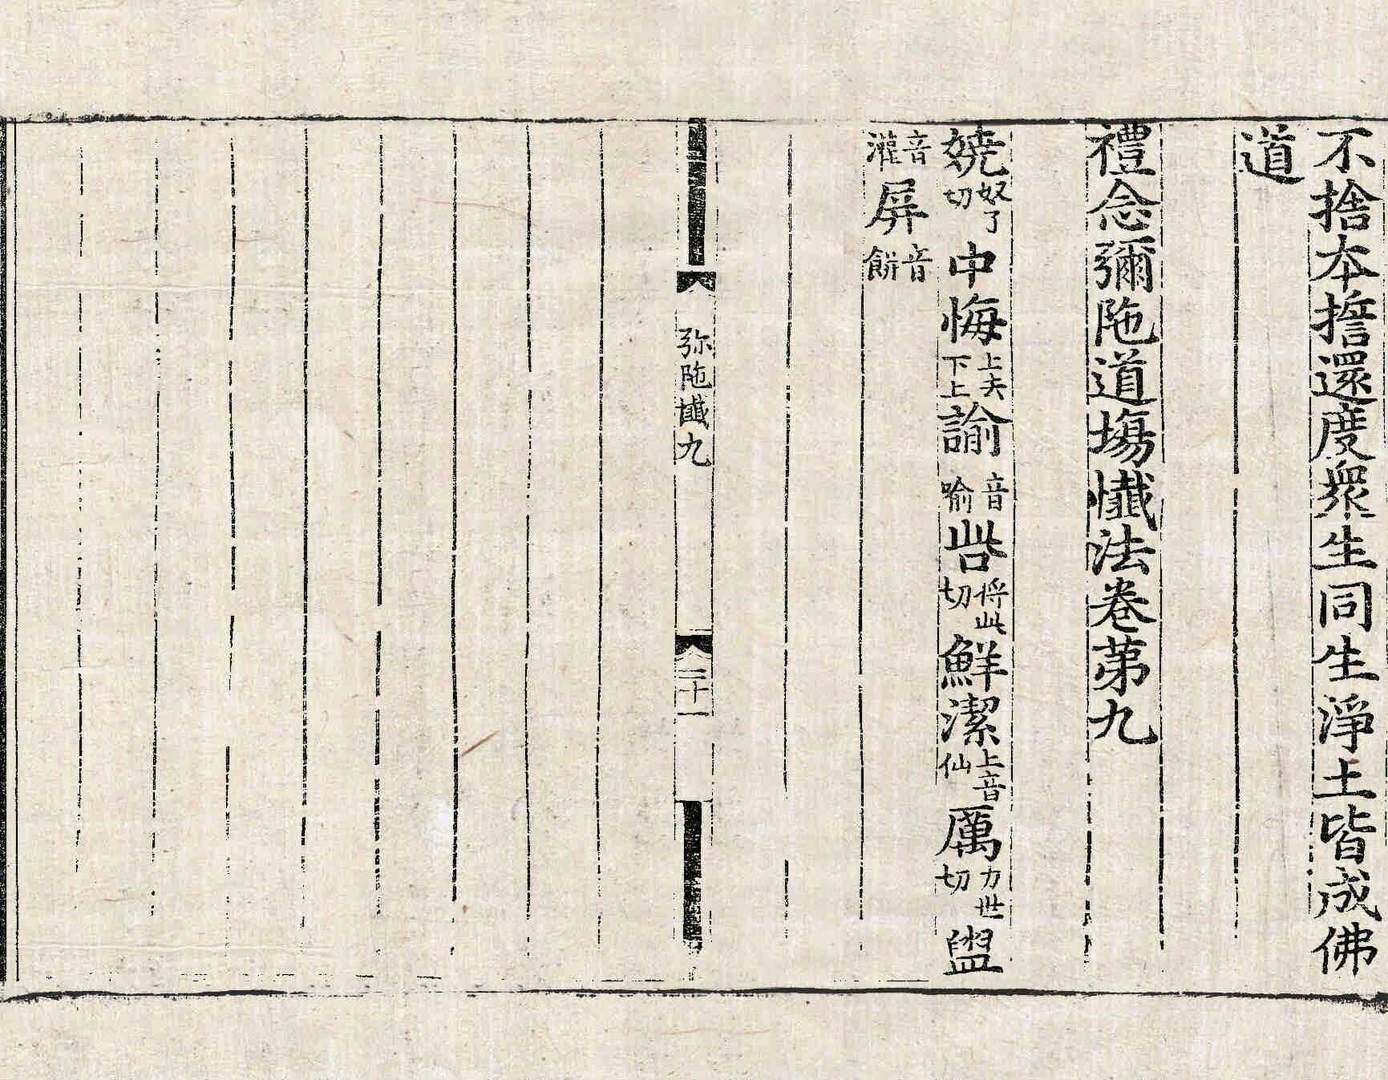 不捨本擔還度衆生同生淨土皆成佛
道
禮念彌陁道塲懺法卷第九
嬈奴了切中悔上去下上諭音喻呰將此切鮮潔上音仙厲力世切盥
音灌屏音餅
弥陁懺九
二十一